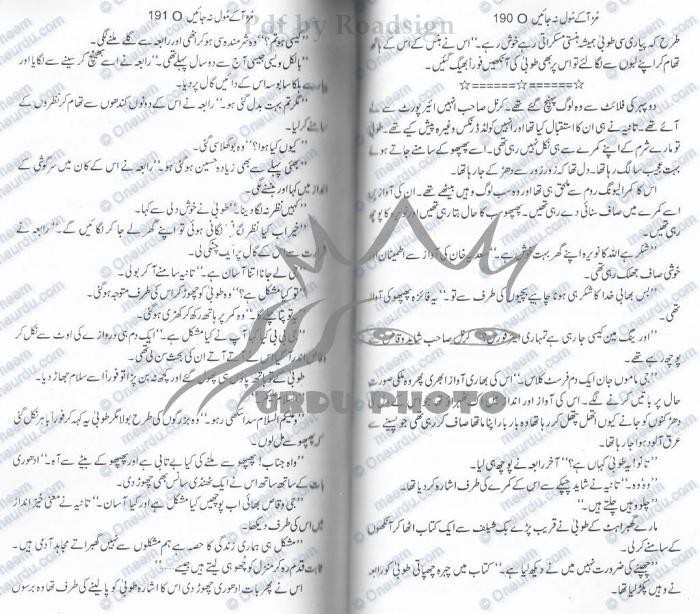 190 O مُڑ آ کے مُول نہ جائیں
طرح کہ پیاری سی طوبیٰ ہمیشہ ہنستی مسکراتی رہے خوش رہے۔“ اس نے ہنس کے اس کے ہاتھ
تھام کر اپنے لبوں سے لگائے تو اس پر بھی طوبیٰ کی آنکھیں فوراً بھیگ گئیں۔
☆======☆======☆
دوپہر کی فلائٹ سے وہ لوگ پہنچ گئے تھے۔ کرنل صاحب انہیں ائیر پورٹ سے لے
آئے تھے۔ تانیہ نے ہی ان کا استقبال کیا تھا اور انہیں کولڈ ڈرنکس وغیرہ پیش کیے تھے۔ طوبیٰ
تو مارے شرم کے اپنے کمرے سے ہی نکل نہیں رہی تھی۔ اسے پھپھو کے سامنے جاتے ہوئے
بہت عجیب سا لگ رہا تھا۔ دل تھا کہ زور زور سے دھڑکے جا رہا تھا۔
اس کا کمرا لیونگ روم سے ملحق ہی تھا اور وہ سب لوگ وہیں بیٹھے تھے۔ ان کی آوازیں
اسے کمرے میں صاف سنائی دے رہی تھیں۔ پھپھو سب کا حال بتا رہی تھیں اور نویرہ کا پوچھ
رہی تھیں۔
”شکر ہے اللہ کا نویرہ اپنے گھر بہت خوش ہے۔“ سعدیہ خان کی آواز سے اطمینان اور
خوشی صاف جھلک رہی تھی۔
”بس بھابی خدا کا شکر ہی ہونا چاہیے بچیوں کی طرف سے تو۔“ یہ فائزہ پھپھو کی آواز
تھی۔
”اور ینگ مین کیسی جا رہی ہے تمہاری ائیر فورس؟“ کرنل صاحب شاید وقاص سے
پوچھ رہے تھے۔
”جی ماموں جان ایک دم فرسٹ کلاس۔“ اس کی بھاری آواز ابھری پھر وہ ملکی صورت
حال پر باتیں کرنے لگے۔ اس کی آواز اور انداز میں
دھڑکنوں کو جانے کیوں اتھل پتھل کر رہا تھا وہ بار بار اپنا ماتھا صاف کر رہی تھی جو پسینے سے
عرق آلود ہوا جا رہا تھا۔
”تانو! یہ طوبیٰ کہاں ہے؟“ آخر رابعہ نے پوچھ ہی لیا۔
”وہ وہ۔“ تانیہ نے شاید چپکے سے اس کے کمرے کی طرف اشارہ کر دیا تھا۔
”چلو وہیں چلتے ہیں۔“
مارے گھبراہٹ کے طوبیٰ نے قریب پڑے بک شیلف سے ایک کتاب اٹھا کر آنکھوں
کے سامنے کر لی۔
”چھپنے کی ضرورت نہیں میں نے دیکھ لیا ہے۔“ کتاب میں چہرہ چھپاتی طوبیٰ کو رابعہ
نے وہیں پکڑ لیا تھا۔
191 O مُڑ آ کے مُول نہ جائیں
”کیسی ہو تم؟“ وہ شرمندہ سی ہو کر اٹھی اور رابعہ سے گلے ملنے لگی۔
”بالکل ویسی جیسی آج سے دو سال پہلے تھی۔“ رابعہ نے اسے بھینچ کر سینے سے لگایا اور
ہلکا سا بوسہ اس کے دائیں گال پر دیا۔
”مگر تم بہت بدل گئی ہو۔“ رابعہ نے اس کے دونوں کندھوں سے تھام کر نظروں کے
سامنے کر لیا۔
”کیوں کیا ہوا؟“ وہ بوکھلا سی گئی۔
”بھئی پہلے سے بھی زیادہ حسین ہو گئی ہو۔“ رابعہ نے اس کے کان میں سرگوشی کے
انداز میں کہا اور ہنسنے لگی۔
”کہیں نظر نہ لگا دینا۔“ طوبیٰ نے خوش دلی سے کہا۔
”خیر اب کیا نظر لگانی، لگانی ہوئی تو اپنے گھر لے جا کر لگائیں گے۔“ رابعہ نے
شرارت سے اس کے گال پر ایک چٹکی لی۔
لے جانا اتنا آسان ہے۔“ تانیہ سامنے آ کر بولی۔
”تو کیا مشکل ہے؟“ وہ طوبیٰ کو چھوڑ کر اس کی طرف متوجہ ہو گئی۔
وہ کمر پر ہاتھ رکھ کر کھڑی ہو گئی۔
”جی بی بی کیا کہا آپ نے کیا مشکل ہے۔“ ایک دم ہی دروازے کی اوٹ سے نکل کر
وقاص اندر آ گیا اس نے آتے آتے ان کی بحث سن لی تھی۔
طوبیٰ کے تو ہاتھ پاؤں ہی پھول گئے اور کچھ نہ بن پڑا تو فوراً اسے سلام جھاڑ دیا۔
”وعلیکم السلام سدا سکھی رہو۔“ وہ بزرگوں کی طرح بولا مگر طوبیٰ یہ کہہ کر فوراً باہر نکل گئی
کہ پھپھو سے مل لوں۔
”واہ جناب! پھپھو سے ملنے کی کیا بے تابی ہے اور پھپھو کے بیٹے سے آہ۔“ ادھوری
بات کے ساتھ ساتھ اس نے ایک ٹھنڈی سانس بھی چھوڑ دی۔
”جی وقاص بھائی اب پوچھیں کیا مشکل ہے اور کیا آسان۔“ تانیہ نے معنی خیز انداز
میں اس کی طرف دیکھا۔
”مشکل ہی ہماری زندگی کا حصہ ہے ہم مشکلوں سے نہیں گھبراتے مجاہد آدمی ہیں۔
ثابت قدم رہ کر منزل کو چھو ہی لیتے ہیں جیسے......“
اس نے پھر بات ادھوری چھوڑ دی اس کا اشارہ طوبیٰ کو پا لینے کی طرف تھا وہ برسوں
Pdf by Roadsign
URDU PHOTO
Oneurdu.com